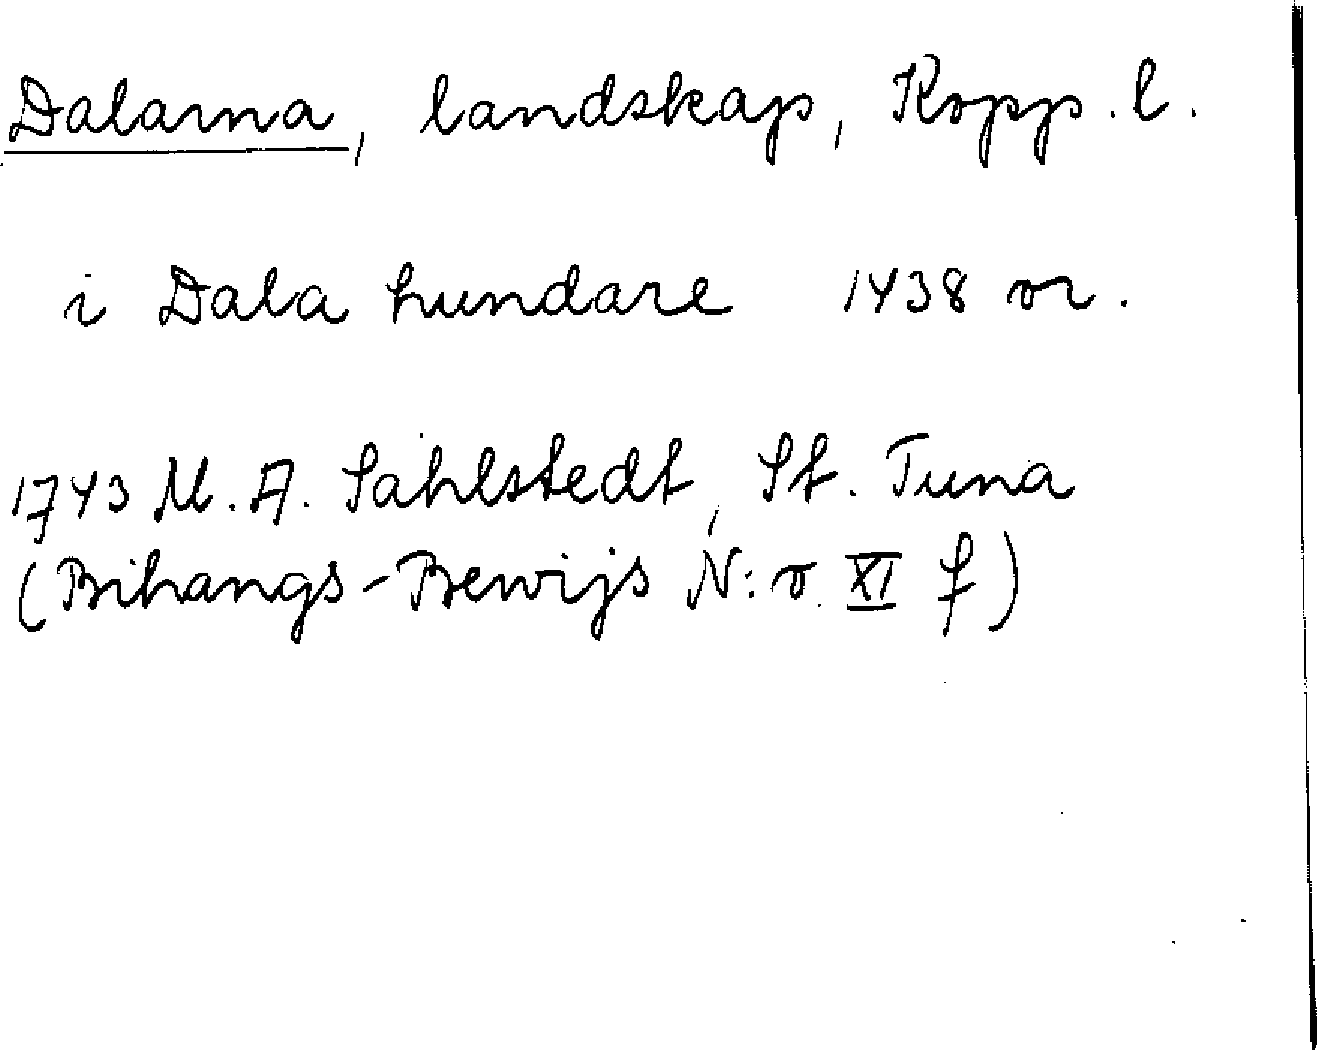 Dalarna, landskap, Kopp. l.
i Dala hundare 1438 or.
1743 M. A. Sahlstedt, St. Tuna
(Bihangs-Bewijs N:o XI f)